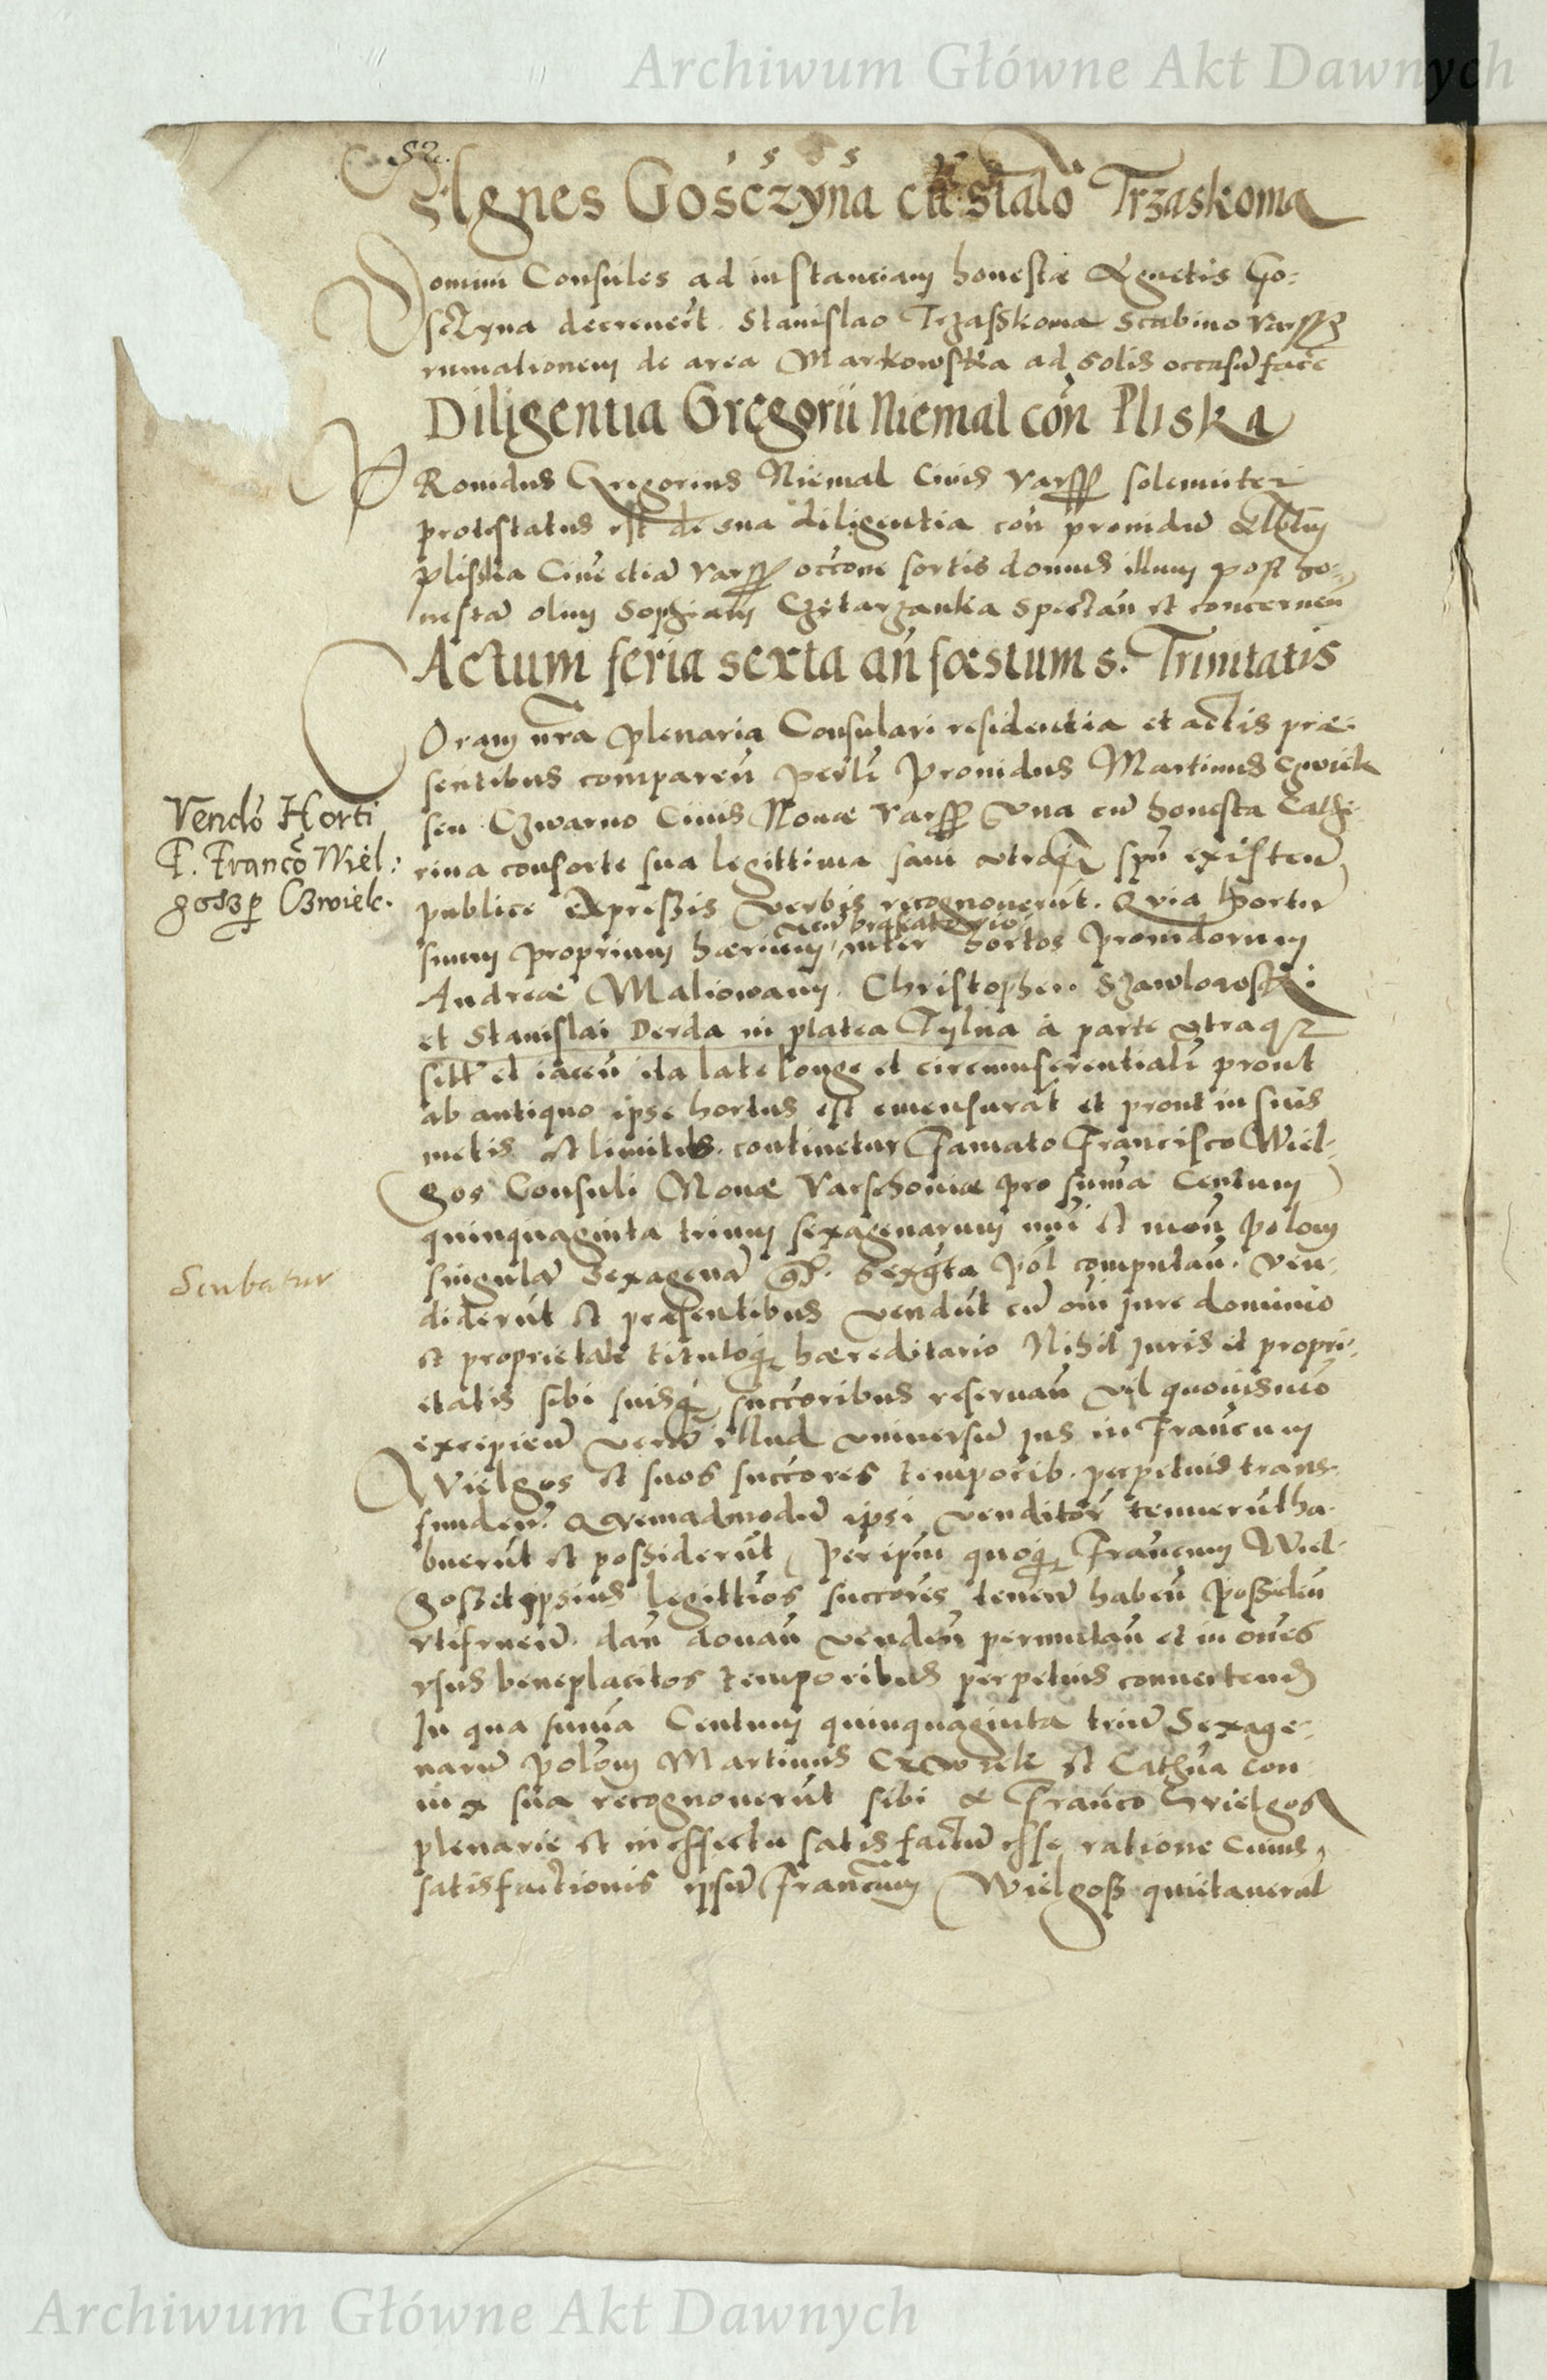 Archiwum Główne Akt Dawnych
82.
Agnes Gosczyna cũ Stalo Trzaskoma
Domini Consules ad instanciam honestæ Agnetis Go-
sczyna decreuerũt Stanislao Trzasskoma Scabino Varss
rumationem de area Markowska ad solis occasũ facẽ
Diligentia Gregorii Niemal con Pliska
PRouidus Gregorius Niemal Ciuis Varss solemniter
protestatus est de sua diligentia con prouidũ
Plisska Ciuẽ etiã Varss occõne sortis domus illum post ho-
nestã olim Sophiam Czetarzanka spectãn et concerneñ
Actum feria sexta añ fæstum S. Trinitatis
COram nra plenaria Consulari residentia et actis præ-
sentibus compareñ perlr Prouidus Martinus Czwiek
seu Czwarno Ciuis Nouæ Varss vna cũ honesta Cathe-
rina consorte sua legittima sani vtriusq existeñ
publice expressis verbis recognouerũt. Quia hortũ
suum proprium hærium inter hortos prouidorum
cũ braseatorio
Andreæ Maliowany Christopheri Szawlowski
et Stanislai Derda in platea Tylna à parte vtraq
sitũ et iaceñ ita late longe et circumferentialr prout
ab antiquo ipse hortus est emensurat et prout in suis
metis et limitibs. continetur Famato Francisco Wiel-
gos Consuli Nouæ Varschouiæ pro suma Centum
quinquaginta trium sexagenarum nui et moñ polon
singulã sexagenã gr. sexgta pol computañ. Ven-
diderũt et præsentibus vendũt cũ oni iure dominio
et proprietate tituloq hæreditario Nihil iuris et propri-
etatis sibi suisq succoribus reseruañ vel quouismo
excipieñ verũ illud vniuersũ ius in Francum
Wielgos et suos succores temporib. perpetuis trans-
fundeñ. Quemadmodũ ipsi venditor tenuerũt ha-
buerũt et possiderũt, Per ipsũ quoq Francum Wiel-
gosz et ipsius legittios succores teneñ habeñ possideñ
vtifrueñ. dañ donañ vendeñ permutañ et in ones
vsus beneplacitos temporibus perpetuis convertend
In qua suma Centum quinquaginta triũ Sexage-
narũ polon Martinus Czwiek et Cathna con-
iux sua recognouerũt sibi à Franco Wielgos
plenarie et in effectu satisfactũ esse ratione cuius
satisfactionis ipsũ Francum Wielgosz quietauerũt
Vendo Horti
F. Franco Wiel:
gosz p Czwiek.
Scribatur
Archiwum Główne Akt Dawnych